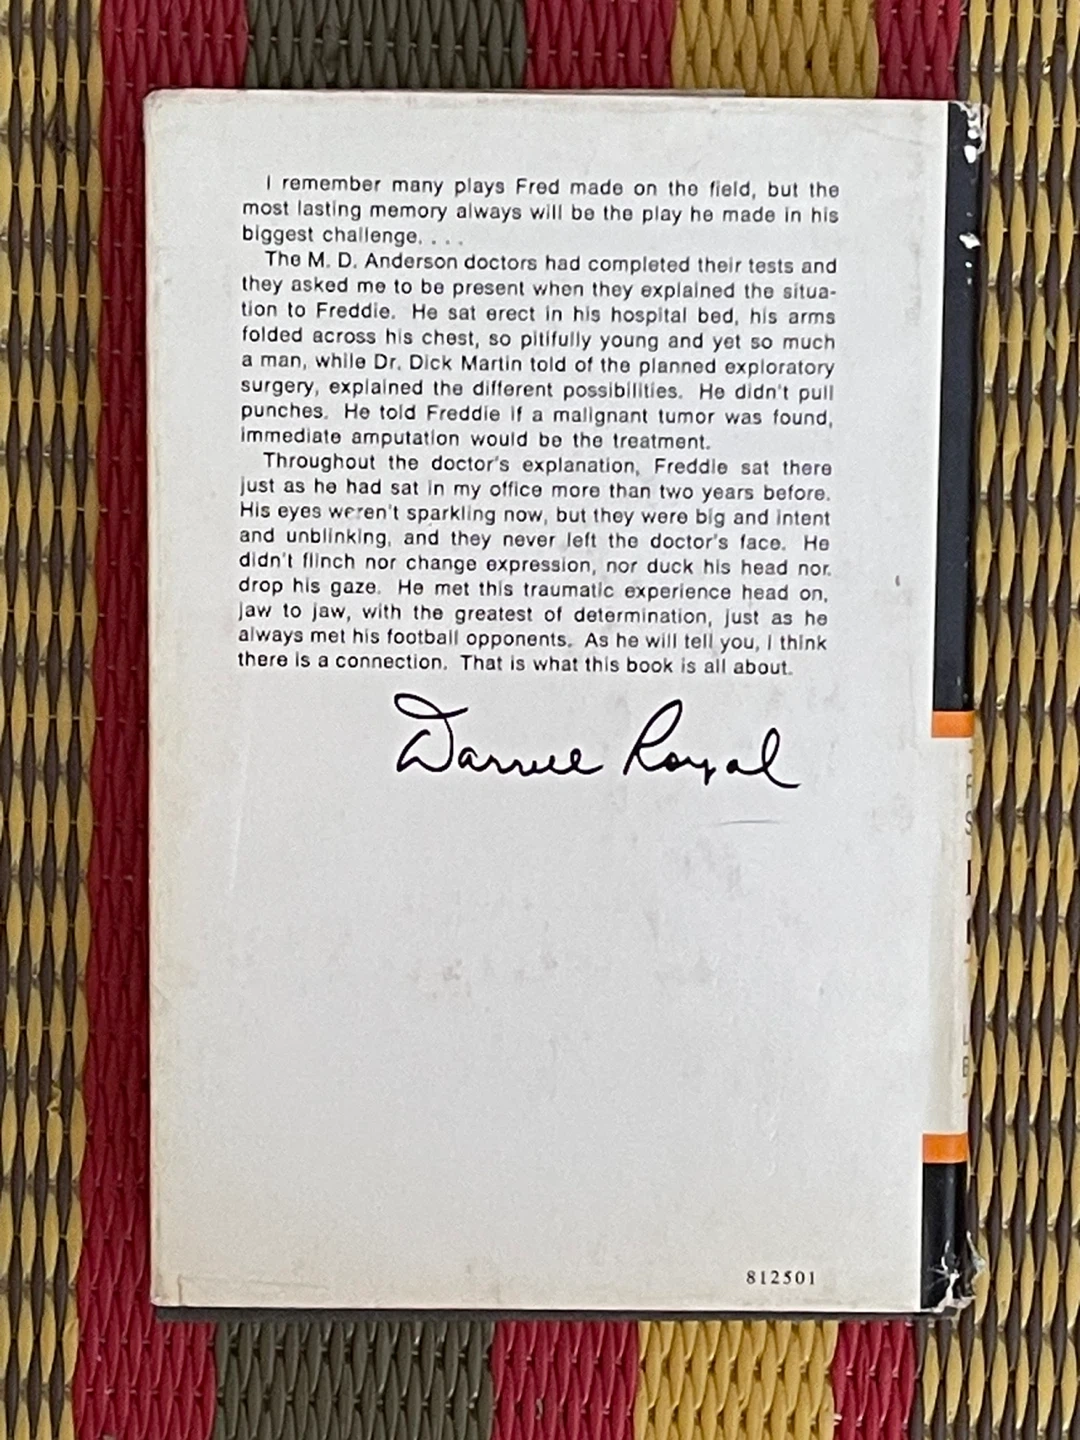 I remember many plays Fred made on the field, but the
most lasting memory always will be the play he made in his
biggest challenge. . . .
The M. D. Anderson doctors had completed their tests and
they asked me to be present when they explained the situa-
tion to Freddie. He sat erect in his hospital bed, his arms
folded across his chest, so pitifully young and yet so much
a man, while Dr. Dick Martin told of the planned exploratory
surgery, explained the different possibilities. He didn't pull
punches. He told Freddie if a malignant tumor was found,
immediate amputation would be the treatment.
Throughout the doctor's explanation, Freddie sat there
just as he had sat in my office more than two years before.
His eyes weren't sparkling now, but they were big and intent
and unblinking, and they never left the doctor's face. He
didn't flinch nor change expression, nor duck his head nor
drop his gaze. He met this traumatic experience head on,
jaw to jaw, with the greatest of determination, just as he
always met his football opponents. As he will tell you, I think
there is a connection. That is what this book is all about.
Darrell Royal
812501